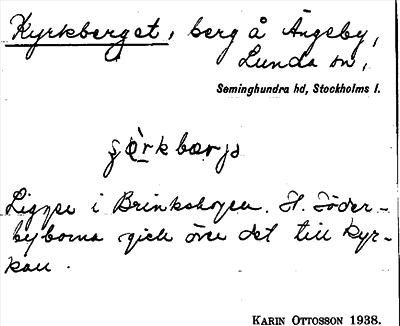 Kyrkberget, berg å Ängeby,
Lunda sn,
Seminghundra hd, Stockholms l.
Ligger i Brinkskogen. H. Söder-
byborna gick över det till kyr-
kan.
KARIN OTTOSSON 1938.